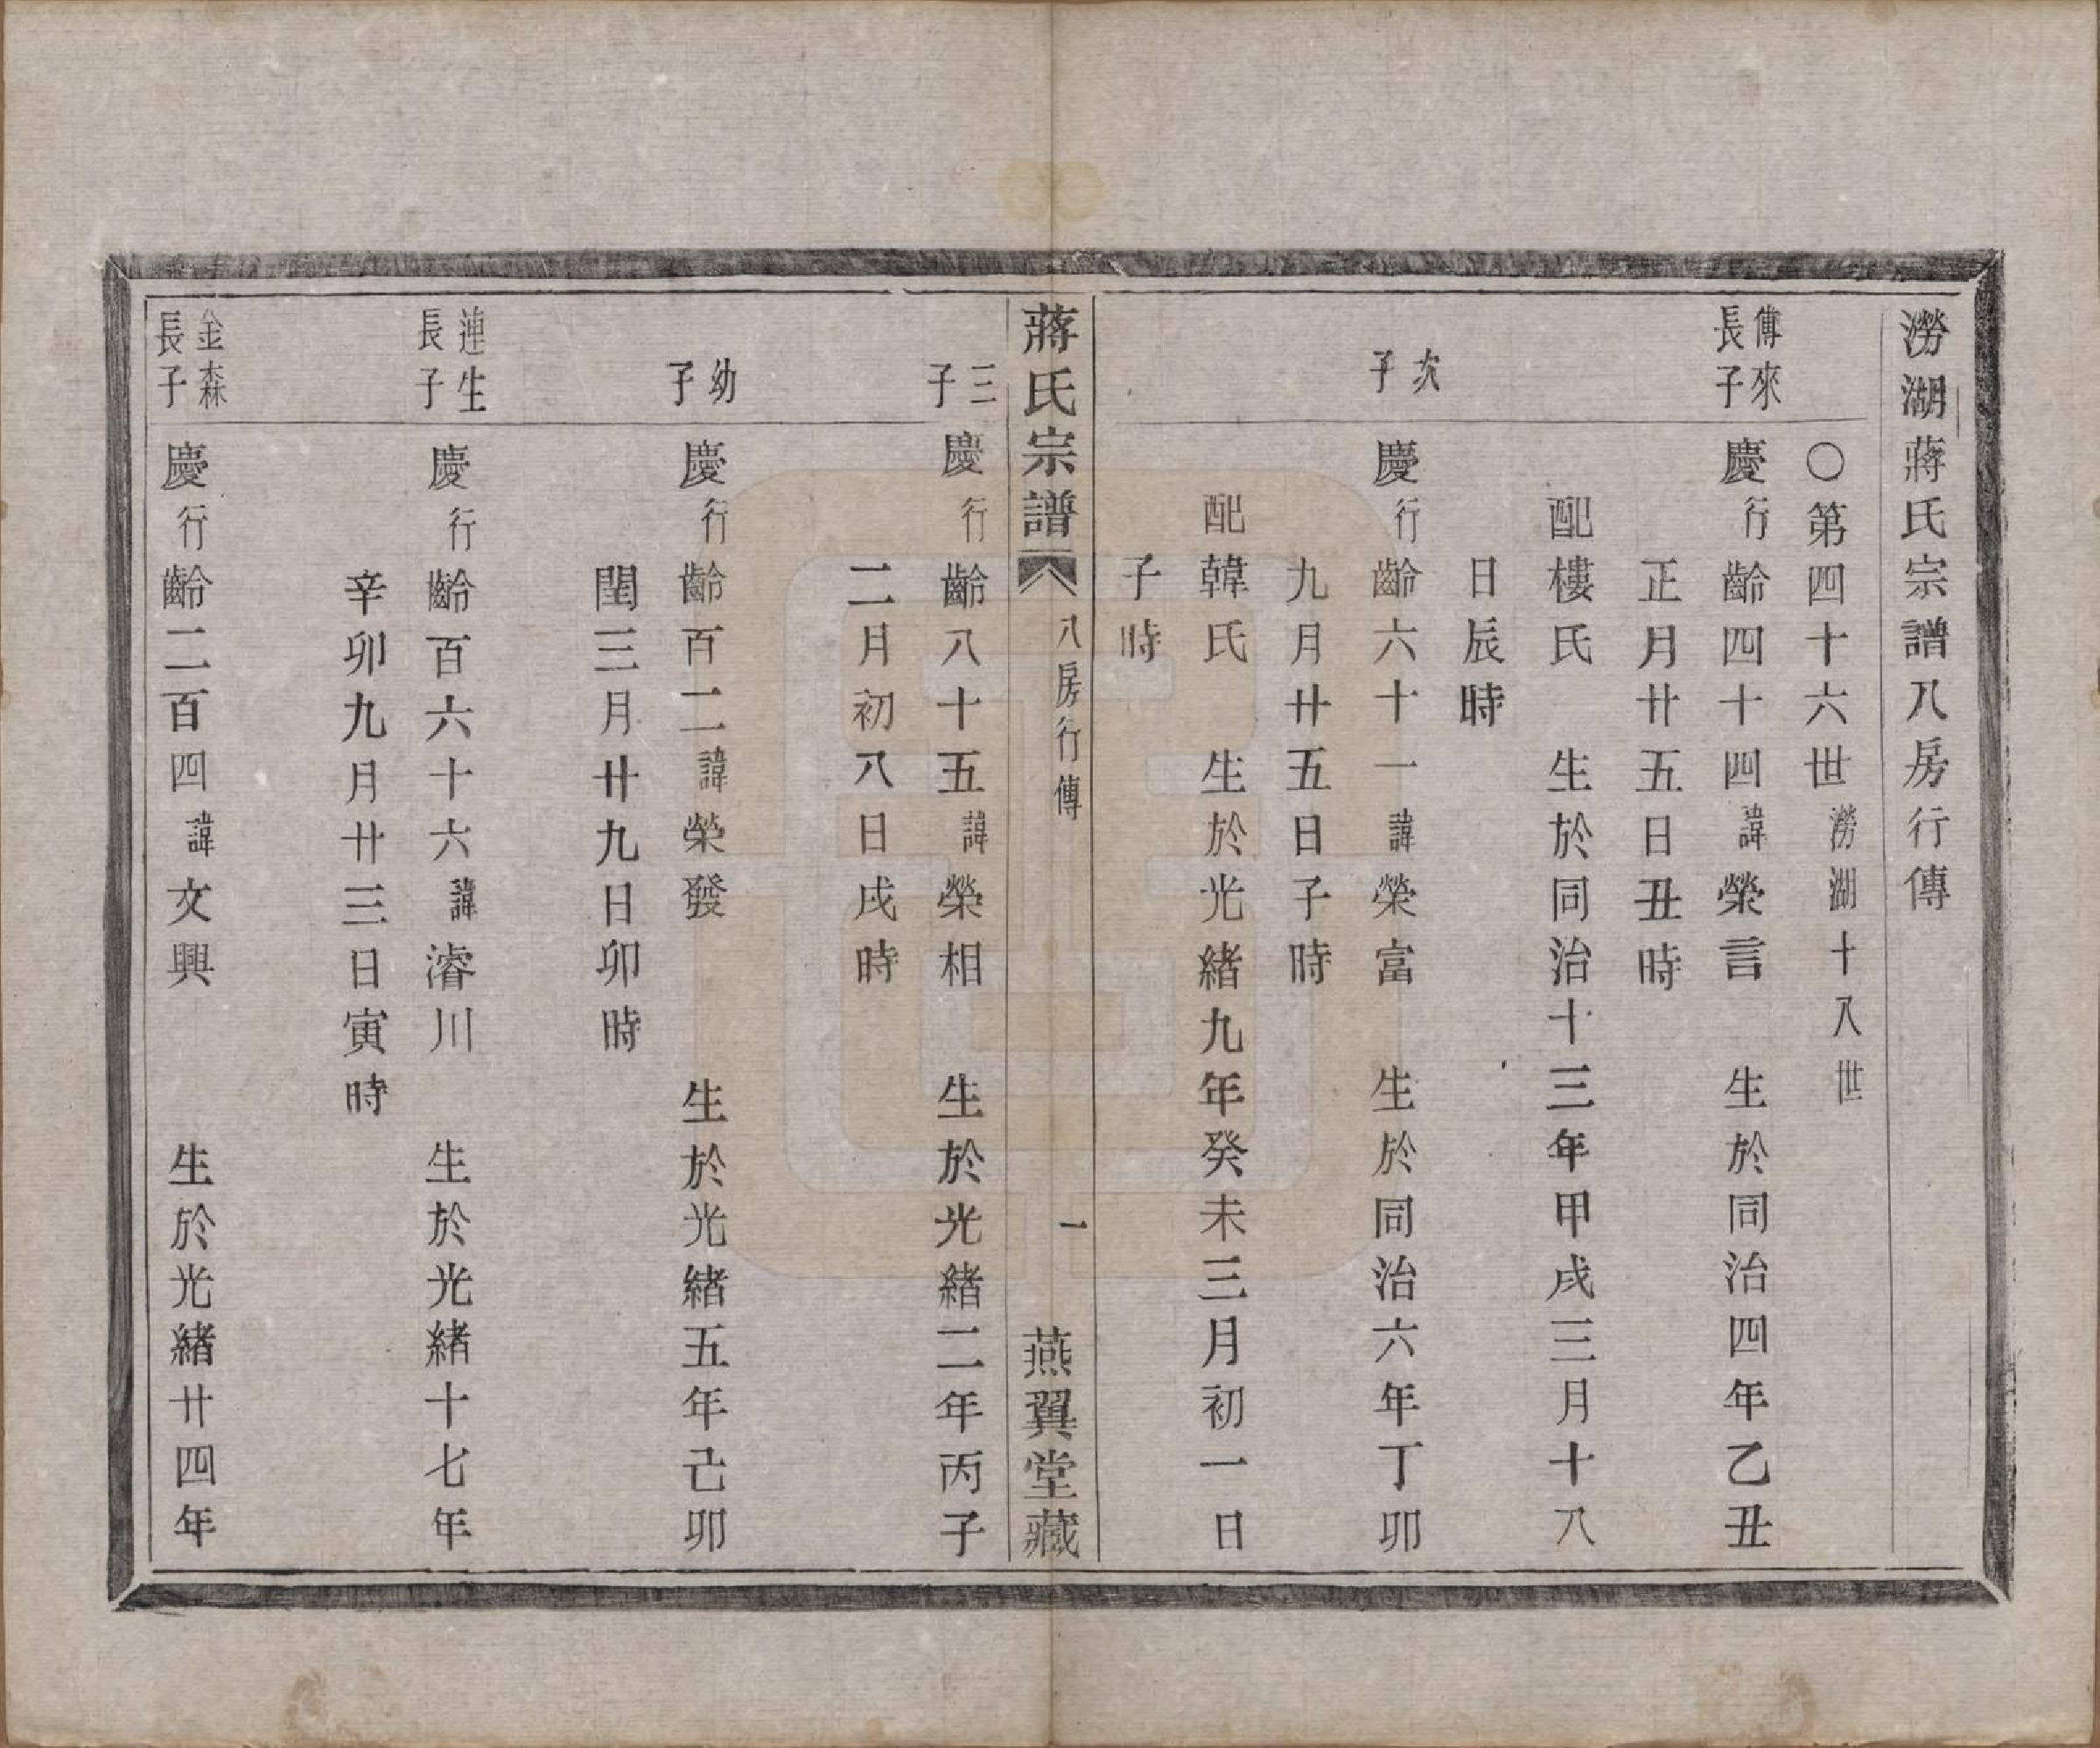 澇湖蔣氏宗譜八房行傳
〇第四十六世澇湖十八世
傅來長子
慶行齡四十四諱榮言　生於同治四年乙丑
正月廿五日丑時
配樓氏　生於同治十三年甲戌三月十八
日辰時
次子
慶行齡六十一諱榮富　生於同治六年丁卯
九月廿五日子時
配韓氏　生於光緒九年癸未三月初一日
子時
蔣氏宗譜　八房行傳　一　燕翼堂藏
三子
慶行齡八十五諱榮相　生於光緒二年丙子
二月初八日戌時
幼子
慶行齡百二諱榮發　生於光緒五年己卯
閏三月廿九日卯時
連生長子
慶行齡百六十六諱濬川　生於光緒十七年
辛卯九月廿三日寅時
金森長子
慶行齡二百四諱文興　生於光緒廿四年